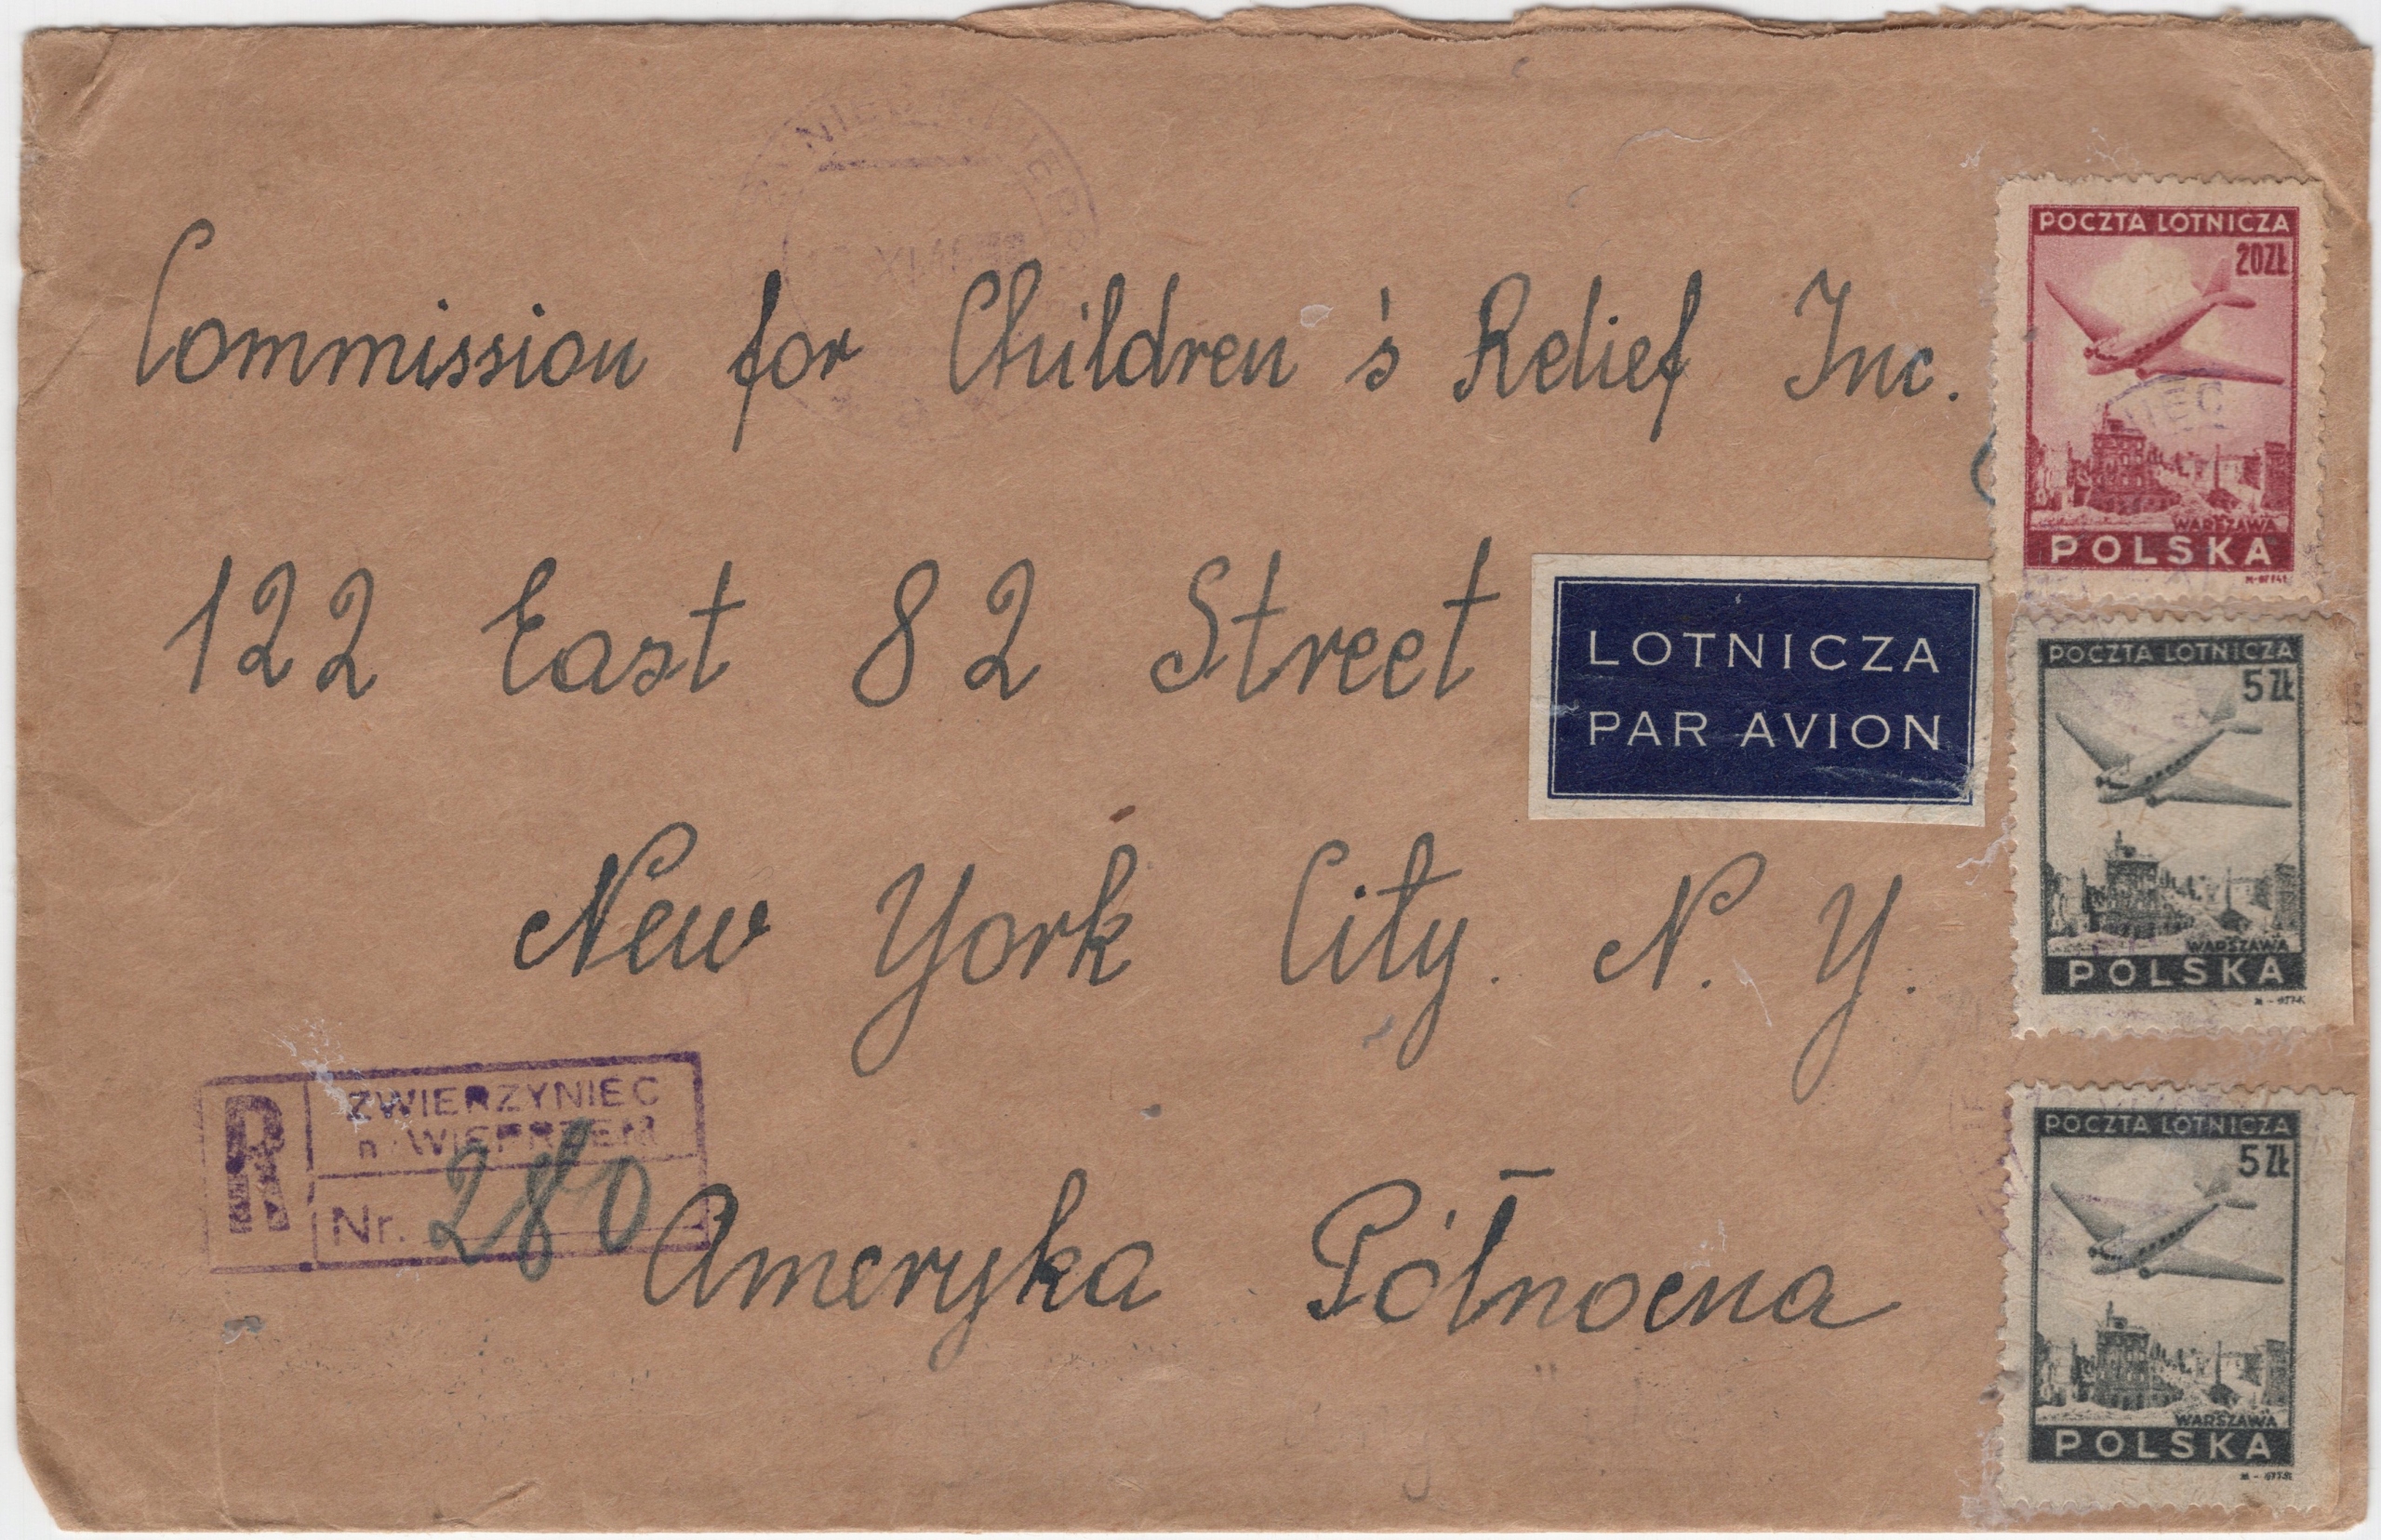 Commission for Children's Relief Inc.
122 East 82 Street
New York City. N. Y.
Ameryka Północna
LOTNICZA
PAR AVION
R
ZWIERZYNIEC
n/WIEPRZEM
Nr. 280
POCZTA LOTNICZA
20ZŁ
WARSZAWA
POLSKA
POCZTA LOTNICZA
5 ZŁ
WARSZAWA
POLSKA
POCZTA LOTNICZA
5 ZŁ
WARSZAWA
POLSKA